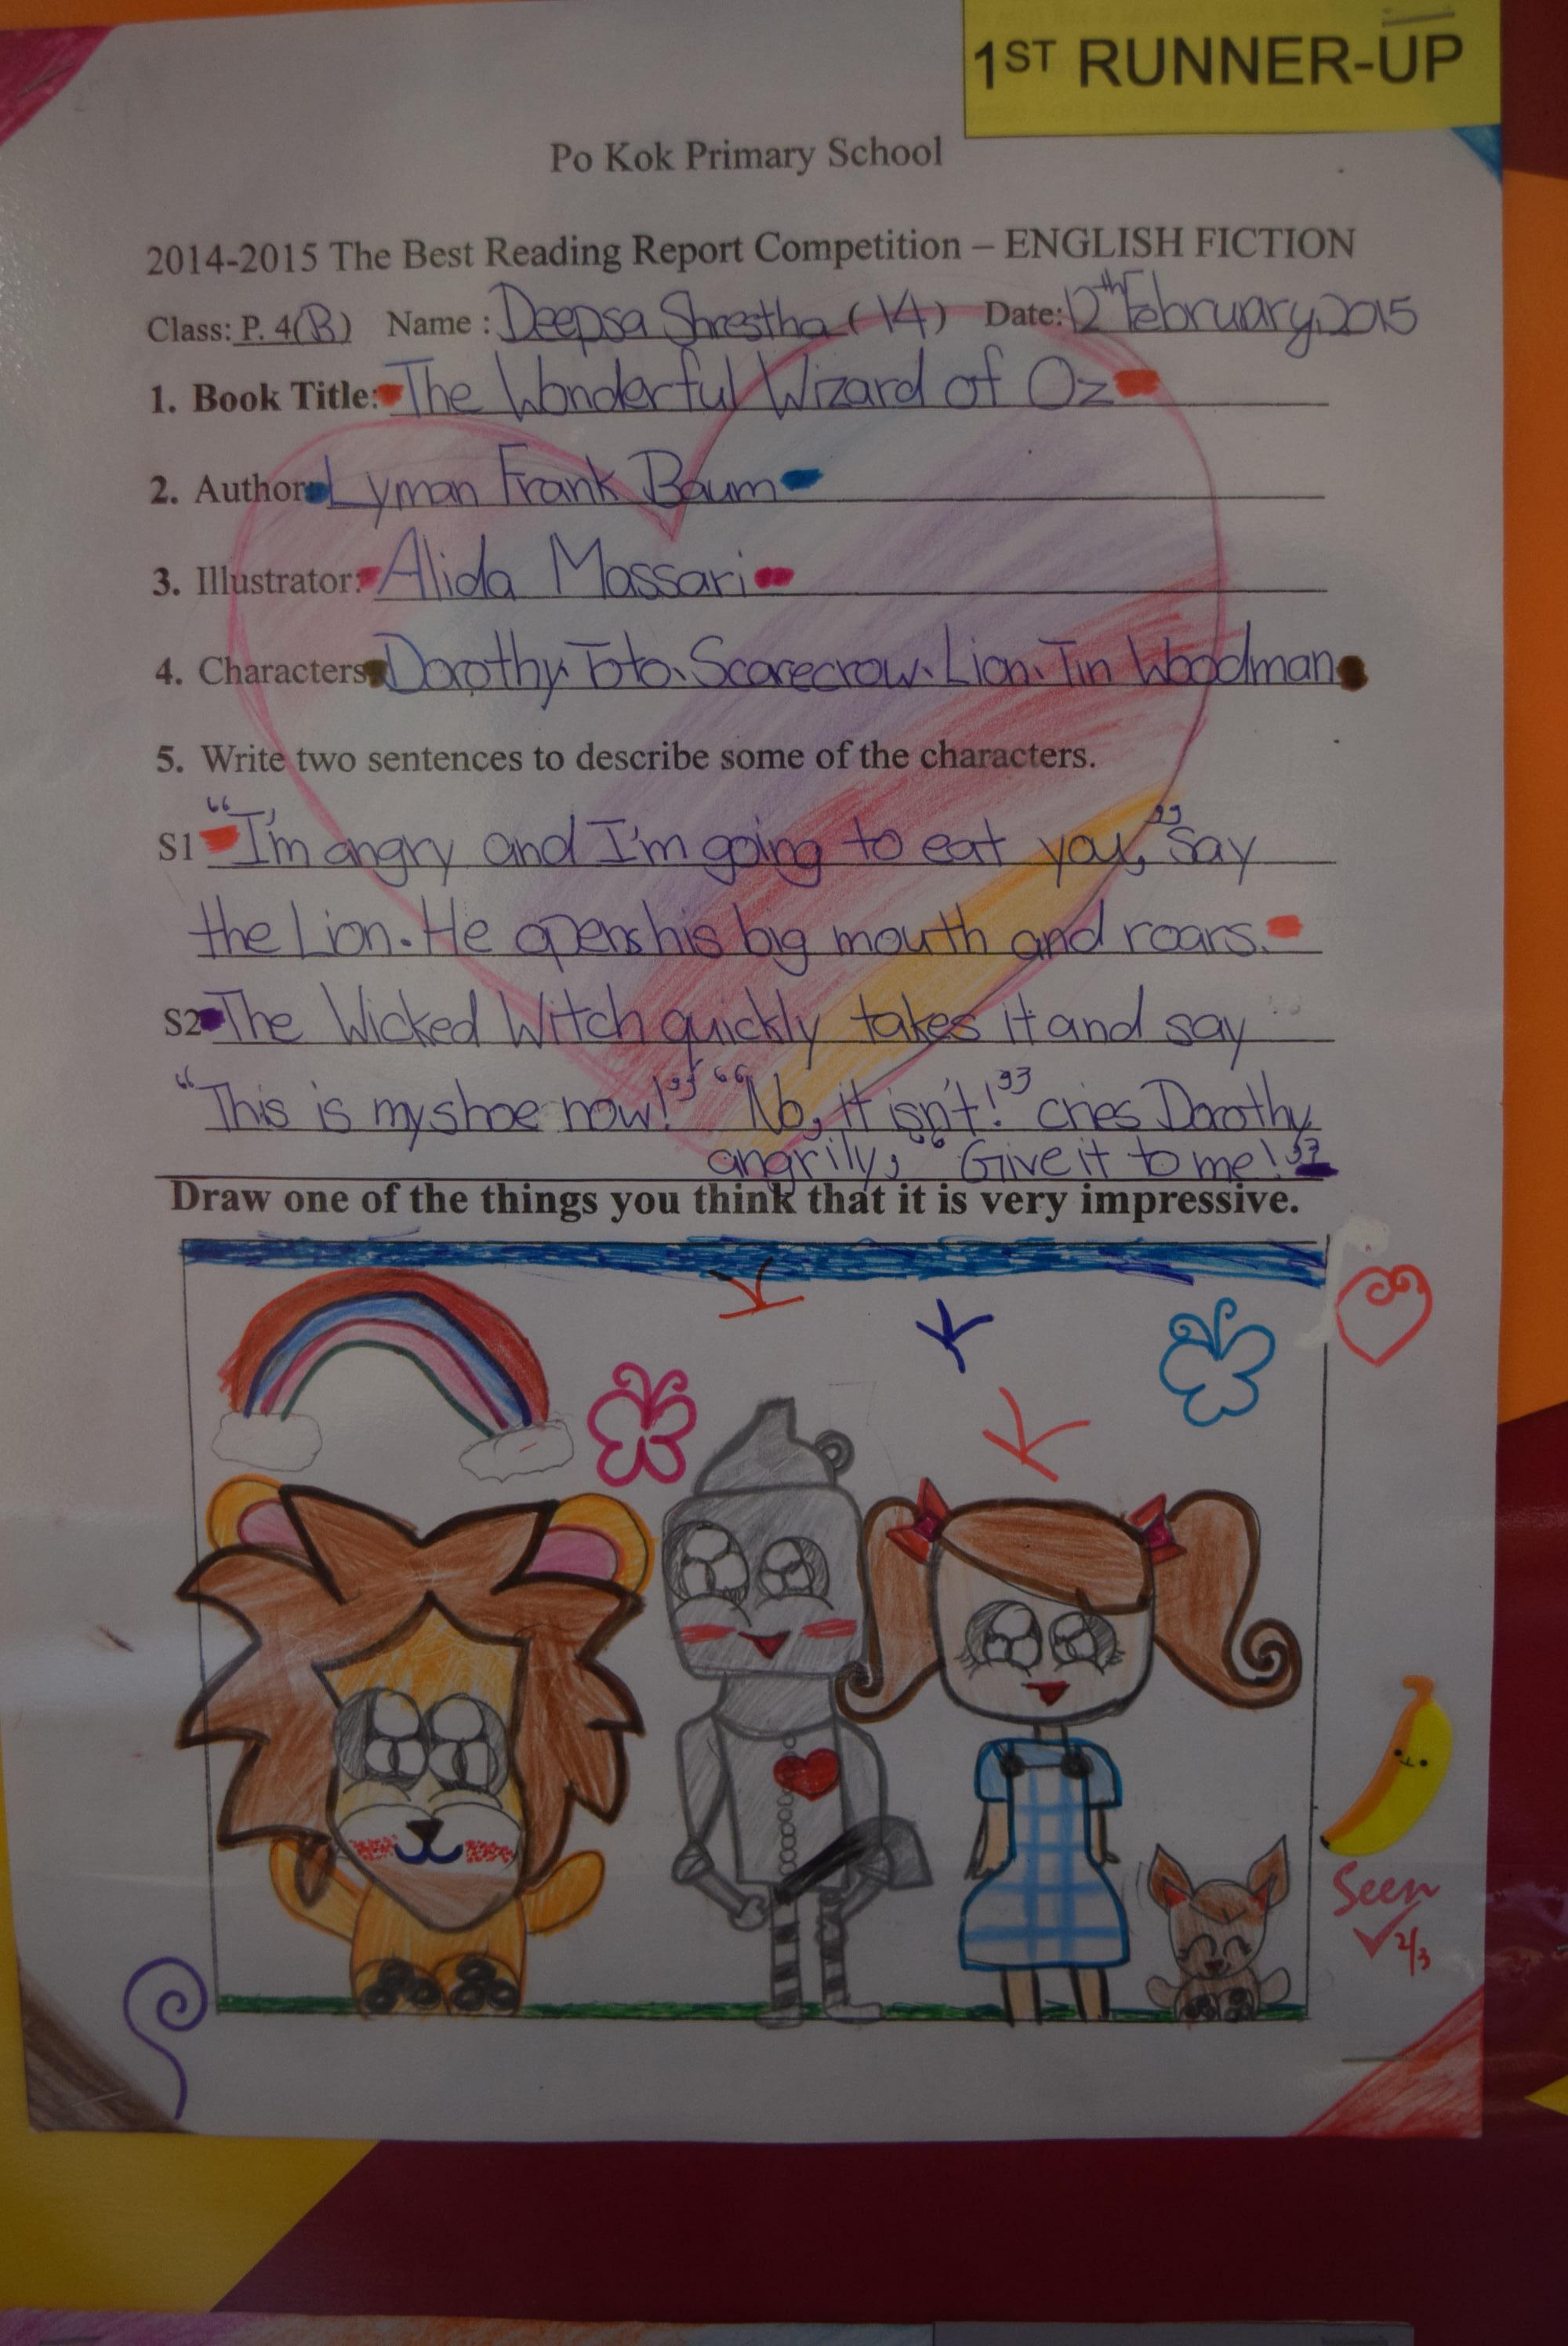 1ST RUNNER-UP
Po Kok Primary School
2014-2015 The Best Reading Report Competition – ENGLISH FICTION
Class: P. 4(B) Name : Deepsa Shrestha (14) Date: 12th February, 2015
1. Book Title: The Wonderful Wizard of Oz
2. Author: Lyman Frank Baum
3. Illustrator: Alida Massari
4. Characters: Dorothy、Toto、Scarecrow、Lion、Tin Woodman
5. Write two sentences to describe some of the characters.
S1 "I'm angry and I'm going to eat you," say
the Lion. He opens his big mouth and roars.
S2 The Wicked Witch quickly takes it and say
"This is my shoe now!" "No, it isn't!" cries Dorothy
angrily, "Give it to me!"
Draw one of the things you think that it is very impressive.
Seen
2/3